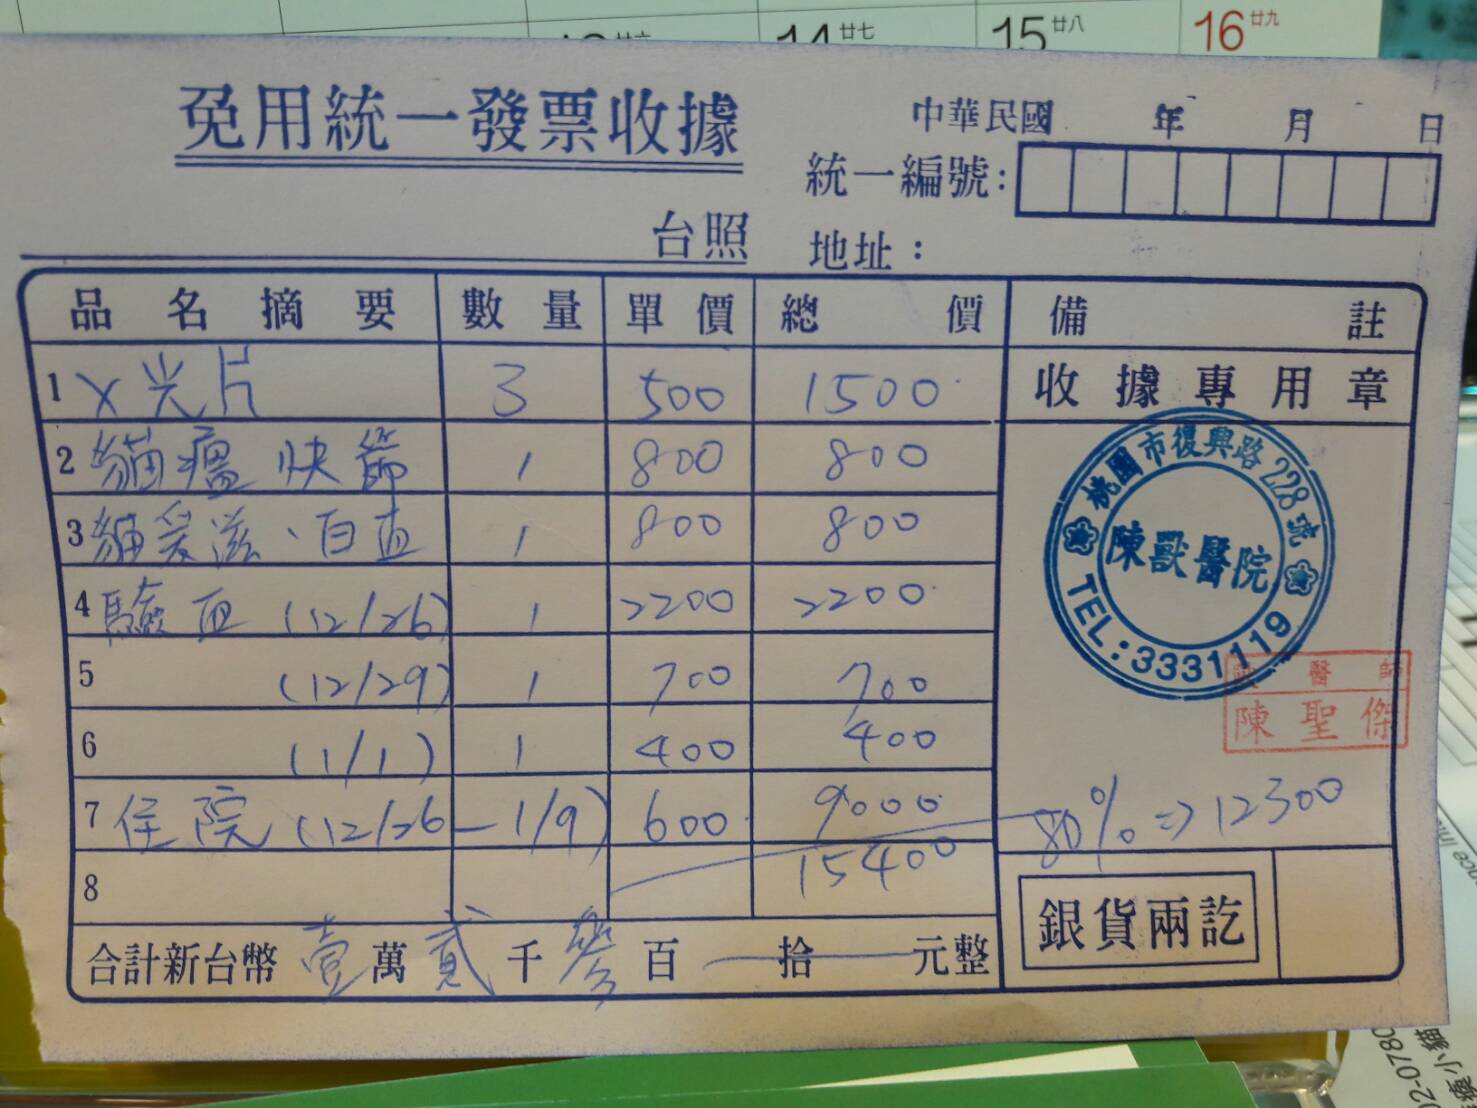 14 廿七 15 廿八 16 廿九
免用統一發票收據
中華民國 年 月 日
統一編號:
台照 地址：
品名摘要 數量 單價 總價 備註
1 X光片 3 500 1500 收據專用章
2 貓瘟快篩 1 800 800
3 貓愛滋、白血 1 800 800
4 驗血 (12/26) 1 2200 2200
5 (12/29) 1 700 700
6 (1/1) 1 400 400
7 住院 (12/26 - 1/9) 600 9000
8 15400
80% => 12300
桃園市復興路228號
陳獸醫院
TEL:3331119
獸醫師
陳聖傑
合計新台幣 壹萬貳千參百 拾 元整
銀貨兩訖